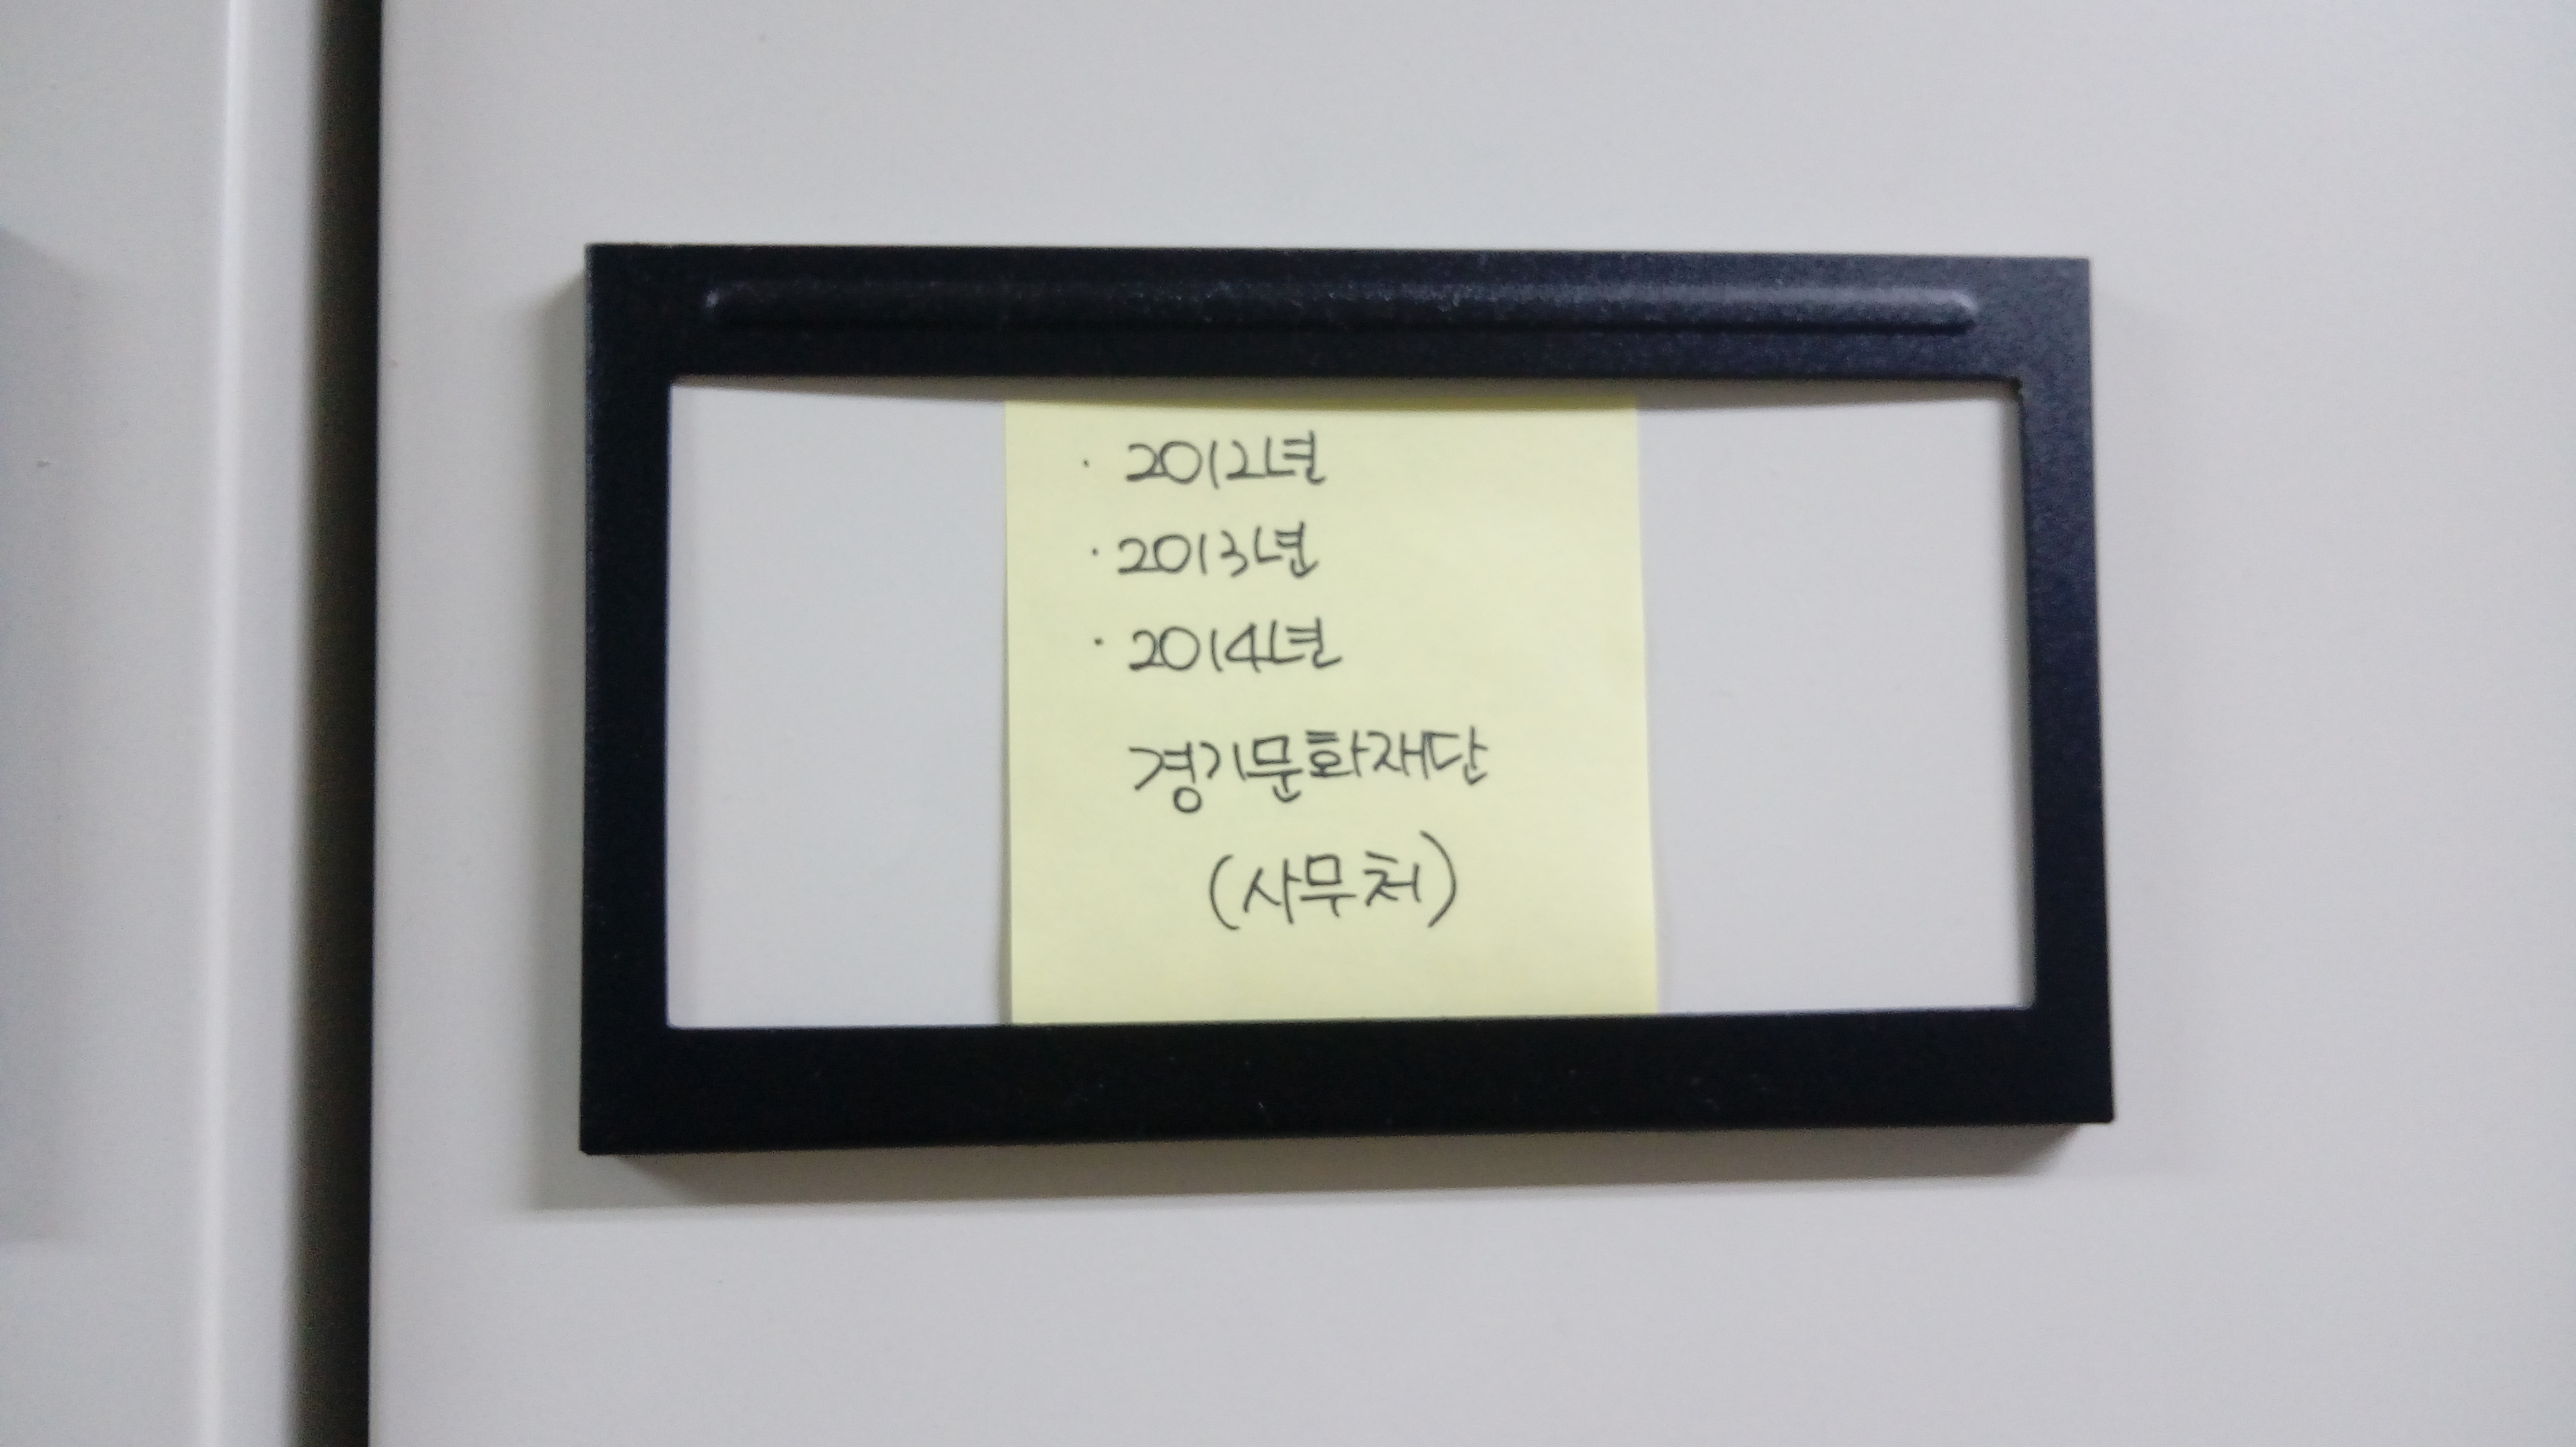 · 2012년
· 2013년
· 2014년
경기문화재단
(사무처)